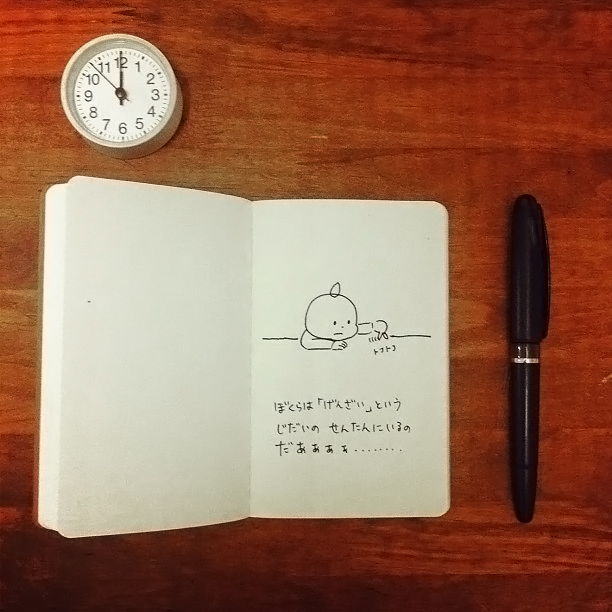 12
1
2
3
4
5
6
7
8
9
10
11
トコトコ
ぼくらは「げんざい」という
じだいの せんたんにいるの
だぁぁぁぁ........